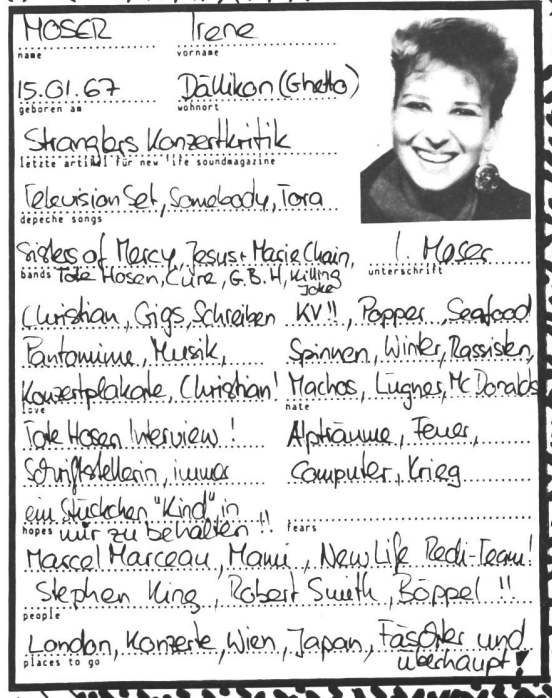 MOSER Irene
name vorname
15.01.67 Dällikon (Ghetto)
geboren am wohnort
Stranglers Konzertkritik
letzte artikel für new life soundmagazine
Television Set, Somebody, Tora
depeche songs
Sisters of Mercy, Jesus + Marie Chain,
Tote Hosen, Cure, G.B.H, Killing Joke
bands
I. Moser
unterschrift
Christian, Gigs, Schreiben
Pantomime, Musik,
Konzertplakate, Christian!
love
KV!!, Popper, Seafood
Spinnen, Winter, Rassisten,
Machos, Lügner, Mc Donalds
hate
Tote Hosen Interview!
Schriftstellerin, immer
ein Stückchen "Kind" in
mir zu behalten!!
hopes
Alpträume, Feuer,
Computer, Krieg
fears
Marcel Marceau, Mami, New Life Redi-Team!
Stephen King, Robert Smith, Böppel!!
people
London, Konzerte, Wien, Japan, und
überhaupt!
places to go